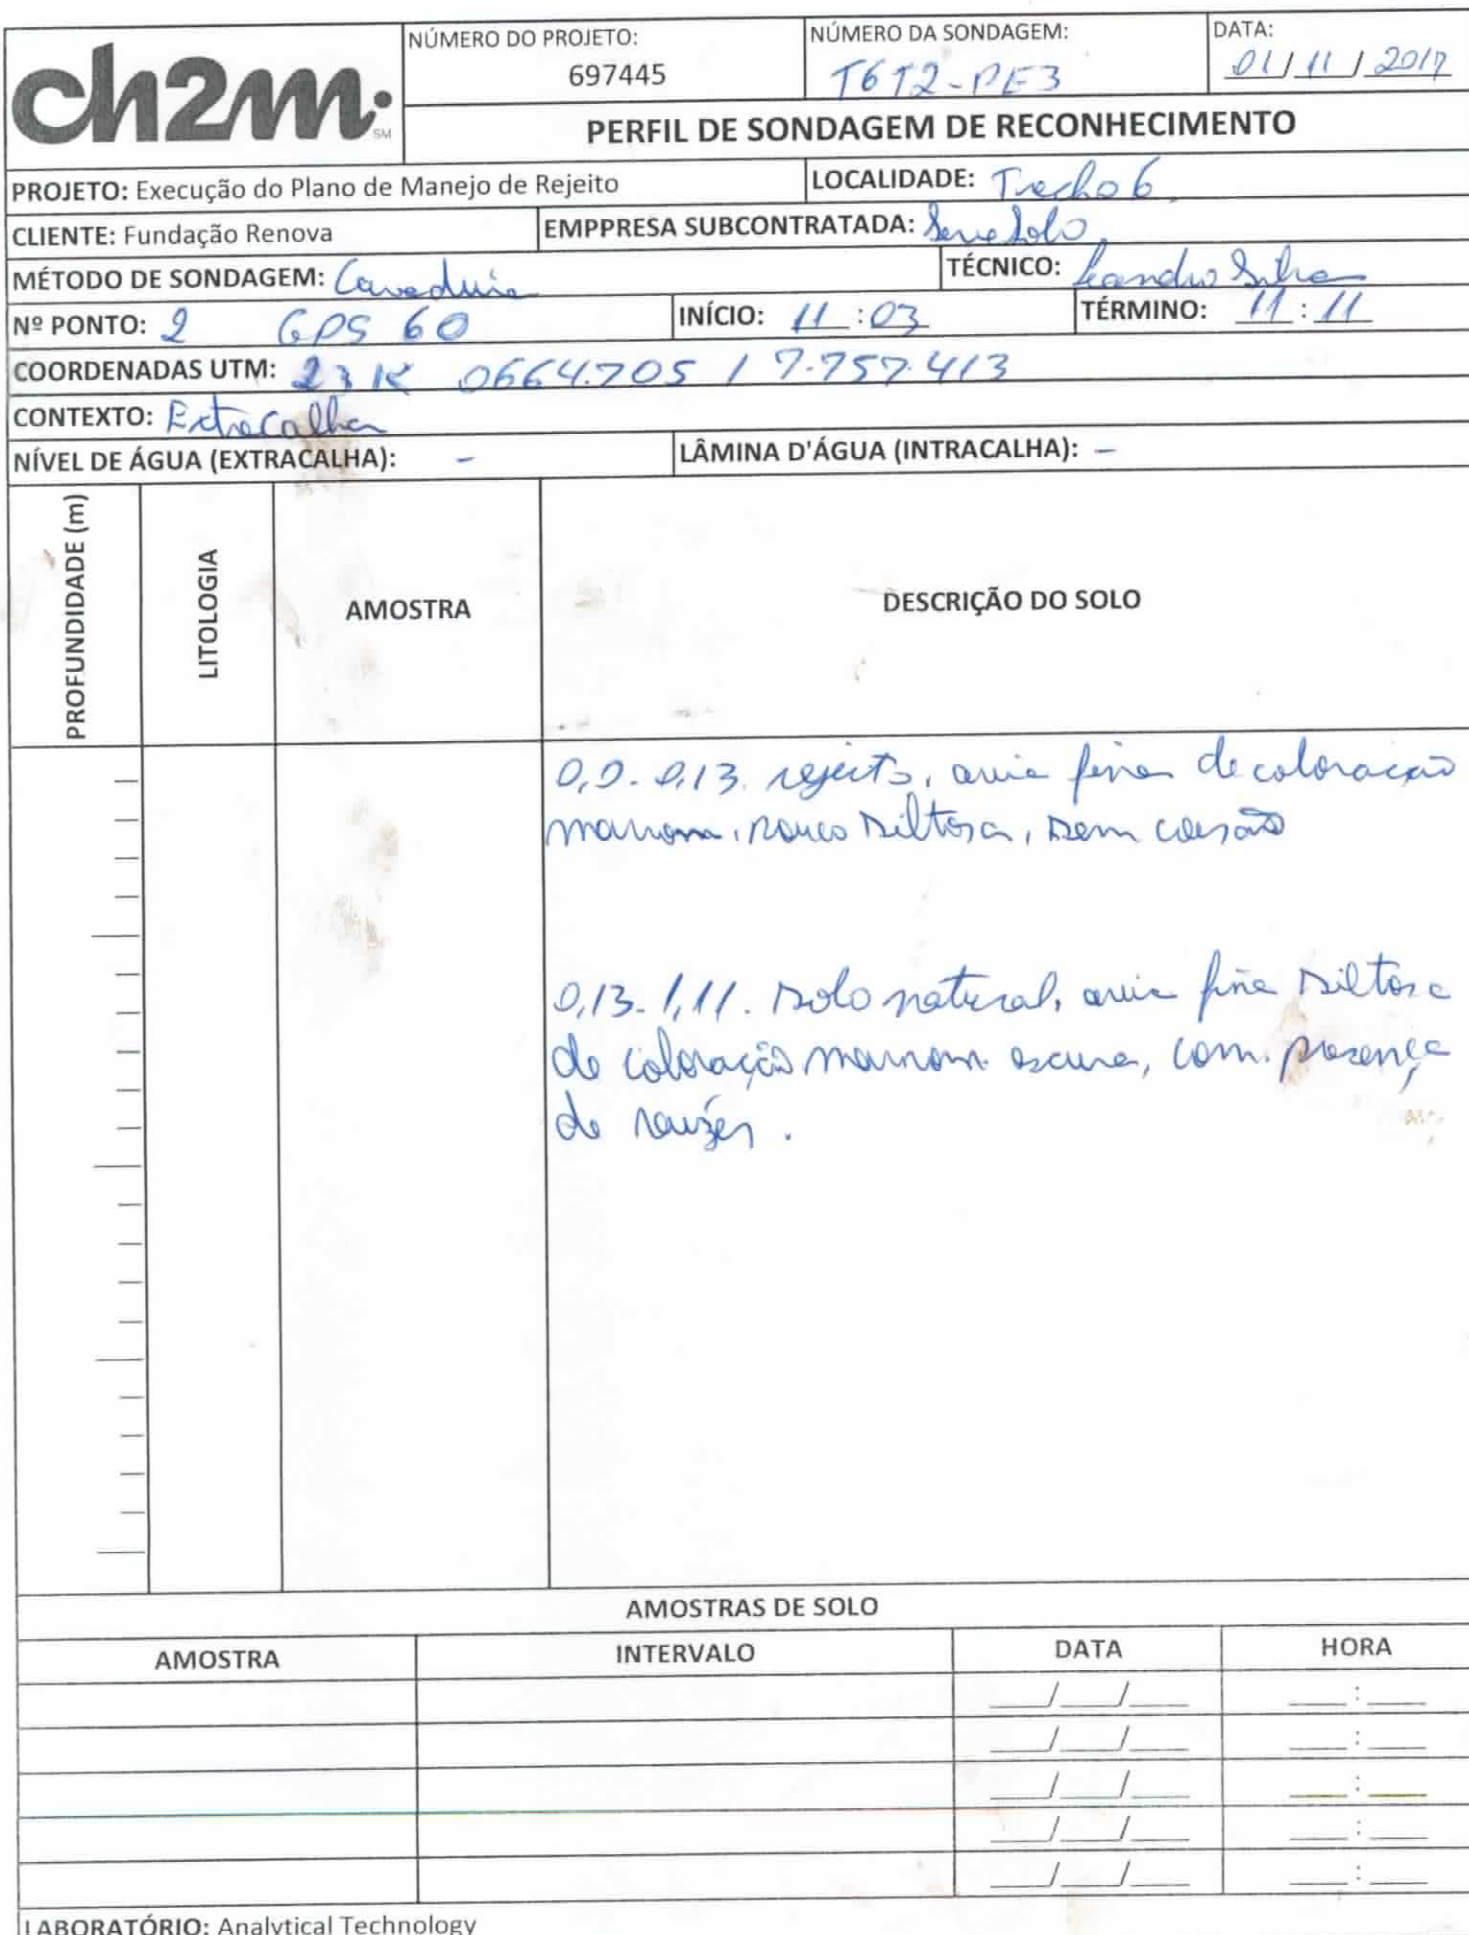 ch2m
SM
NÚMERO DO PROJETO:
697445
NÚMERO DA SONDAGEM:
T6T2-PE3
DATA:
01/11/2017
PERFIL DE SONDAGEM DE RECONHECIMENTO
PROJETO: Execução do Plano de Manejo de Rejeito
LOCALIDADE: Trecho 6
CLIENTE: Fundação Renova
EMPPRESA SUBCONTRATADA: Solo
MÉTODO DE SONDAGEM:
TÉCNICO: Leandro Silva
Nº PONTO: 2 GPS 60
INÍCIO: 11:03
TÉRMINO: 11:11
COORDENADAS UTM: 23 K 0664.705 / 7.757.413
CONTEXTO: Extracalha
NÍVEL DE ÁGUA (EXTRACALHA): -
LÂMINA D'ÁGUA (INTRACALHA): -
PROFUNDIDADE (m)
LITOLOGIA
AMOSTRA
DESCRIÇÃO DO SOLO
0,0-0,13. rejeito, areia fina de coloração
marrom, pouco siltosa, sem coesão
0,13-1,11. solo natural, areia fina siltosa
de coloração marrom escura, com presença
de raízes.
AMOSTRAS DE SOLO
AMOSTRA
INTERVALO
DATA
HORA
___/___/___ ___:___
___/___/___ ___:___
___/___/___ ___:___
___/___/___ ___:___
___/___/___ ___:___
LABORATÓRIO: Analytical Technology